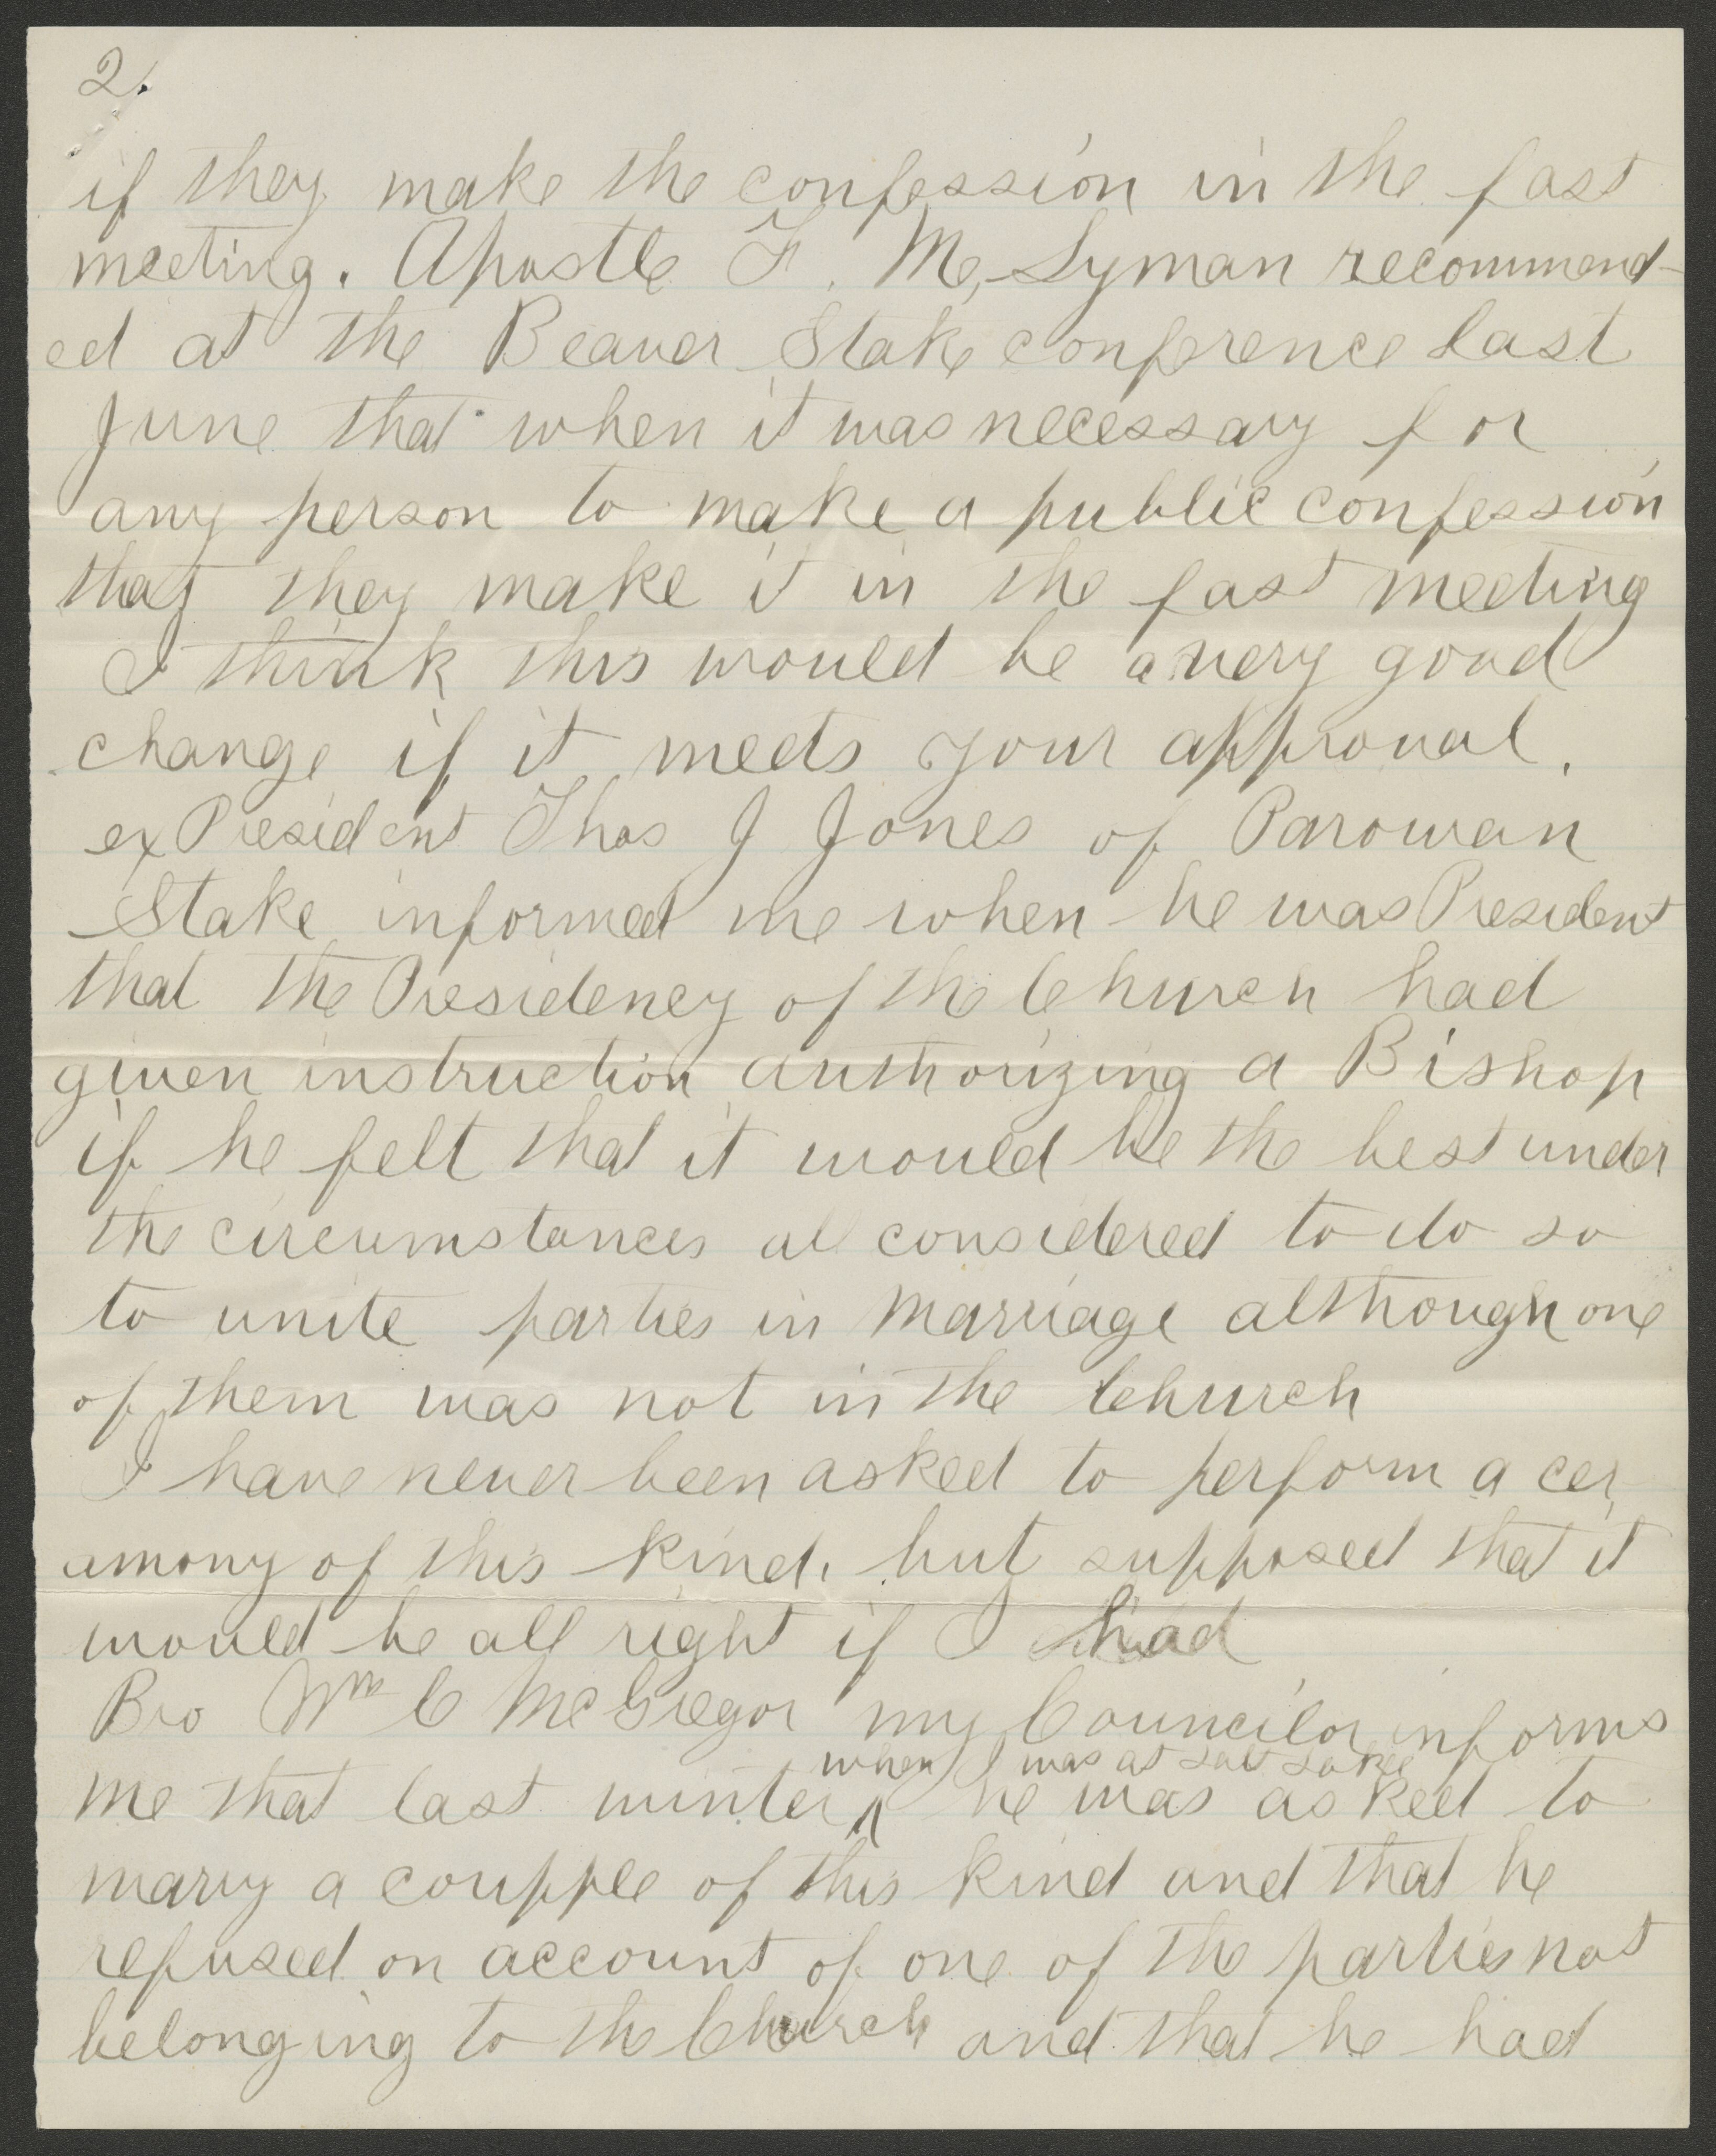 2.
if they make the confession in the fast
meeting. Apostle F. M. Lyman recommend-
ed at the Beaver Stake conference last
June that when it was necessary for
any person to make a public confession
that they make it in the fast meeting
I think this would be a very good
change if it meets your approval.
ex President Thos J Jones of Parowan
Stake informed me when he was President
that the Presidency of the Church had
given instruction authorizing a Bishop
if he felt that it would be the best under
the circumstances al considered to do so
to unite parties in marriage although one
of them was not in the Church
I have never been asked to perform a cer
amony of this kind, but supposed that it
would be all right if I had
Bro Wm C McGregor my Councilor informs
when I was at Salt Lake
me that last winter ^ he was asked to
mary a coupple of this kind and that he
refused on account of one of the parties not
belonging to the Church and that he had